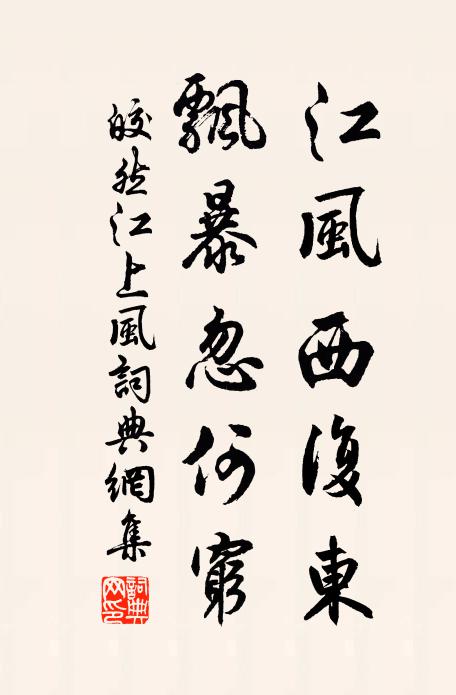 江風西復東
飄暴忽何窮
皎然江上風詞典網集
詞典網印